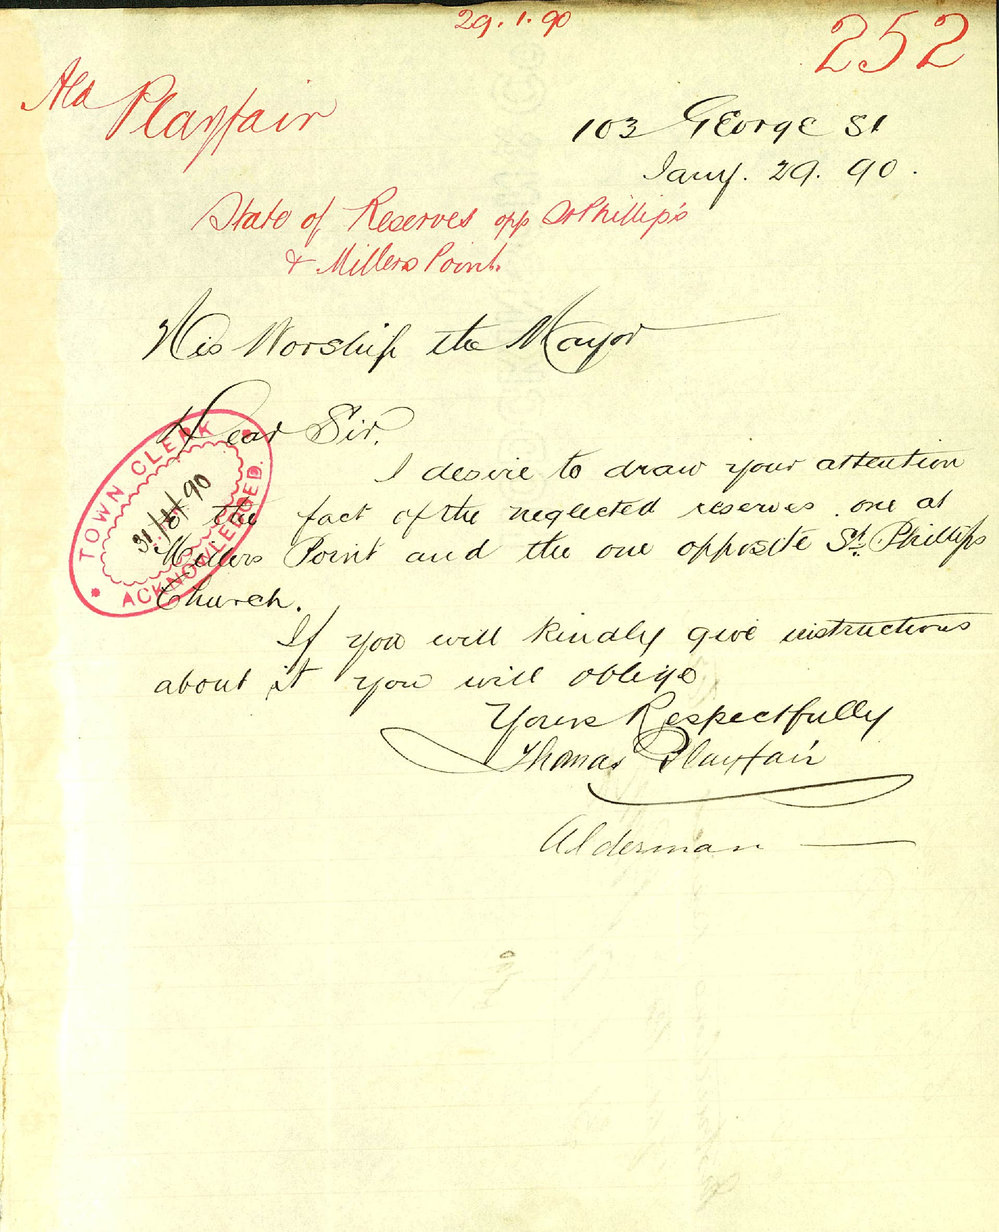 29.1.90
252
Ald Playfair
103 George St
Jany. 29. 90.
State of Reserves opp St Phillip's
& Millers Point.
His Worship the Mayor
Dear Sir.
I desire to draw your attention
to the fact of the neglected reserves. one at
Millers Point and the one opposite St. Phillips
Church.
If you will kindly give instructions
about it you will oblige
Yours Respectfully
Thomas Playfair
Alderman
TOWN CLERK
31/1/90
ACKNOWLEDGED.